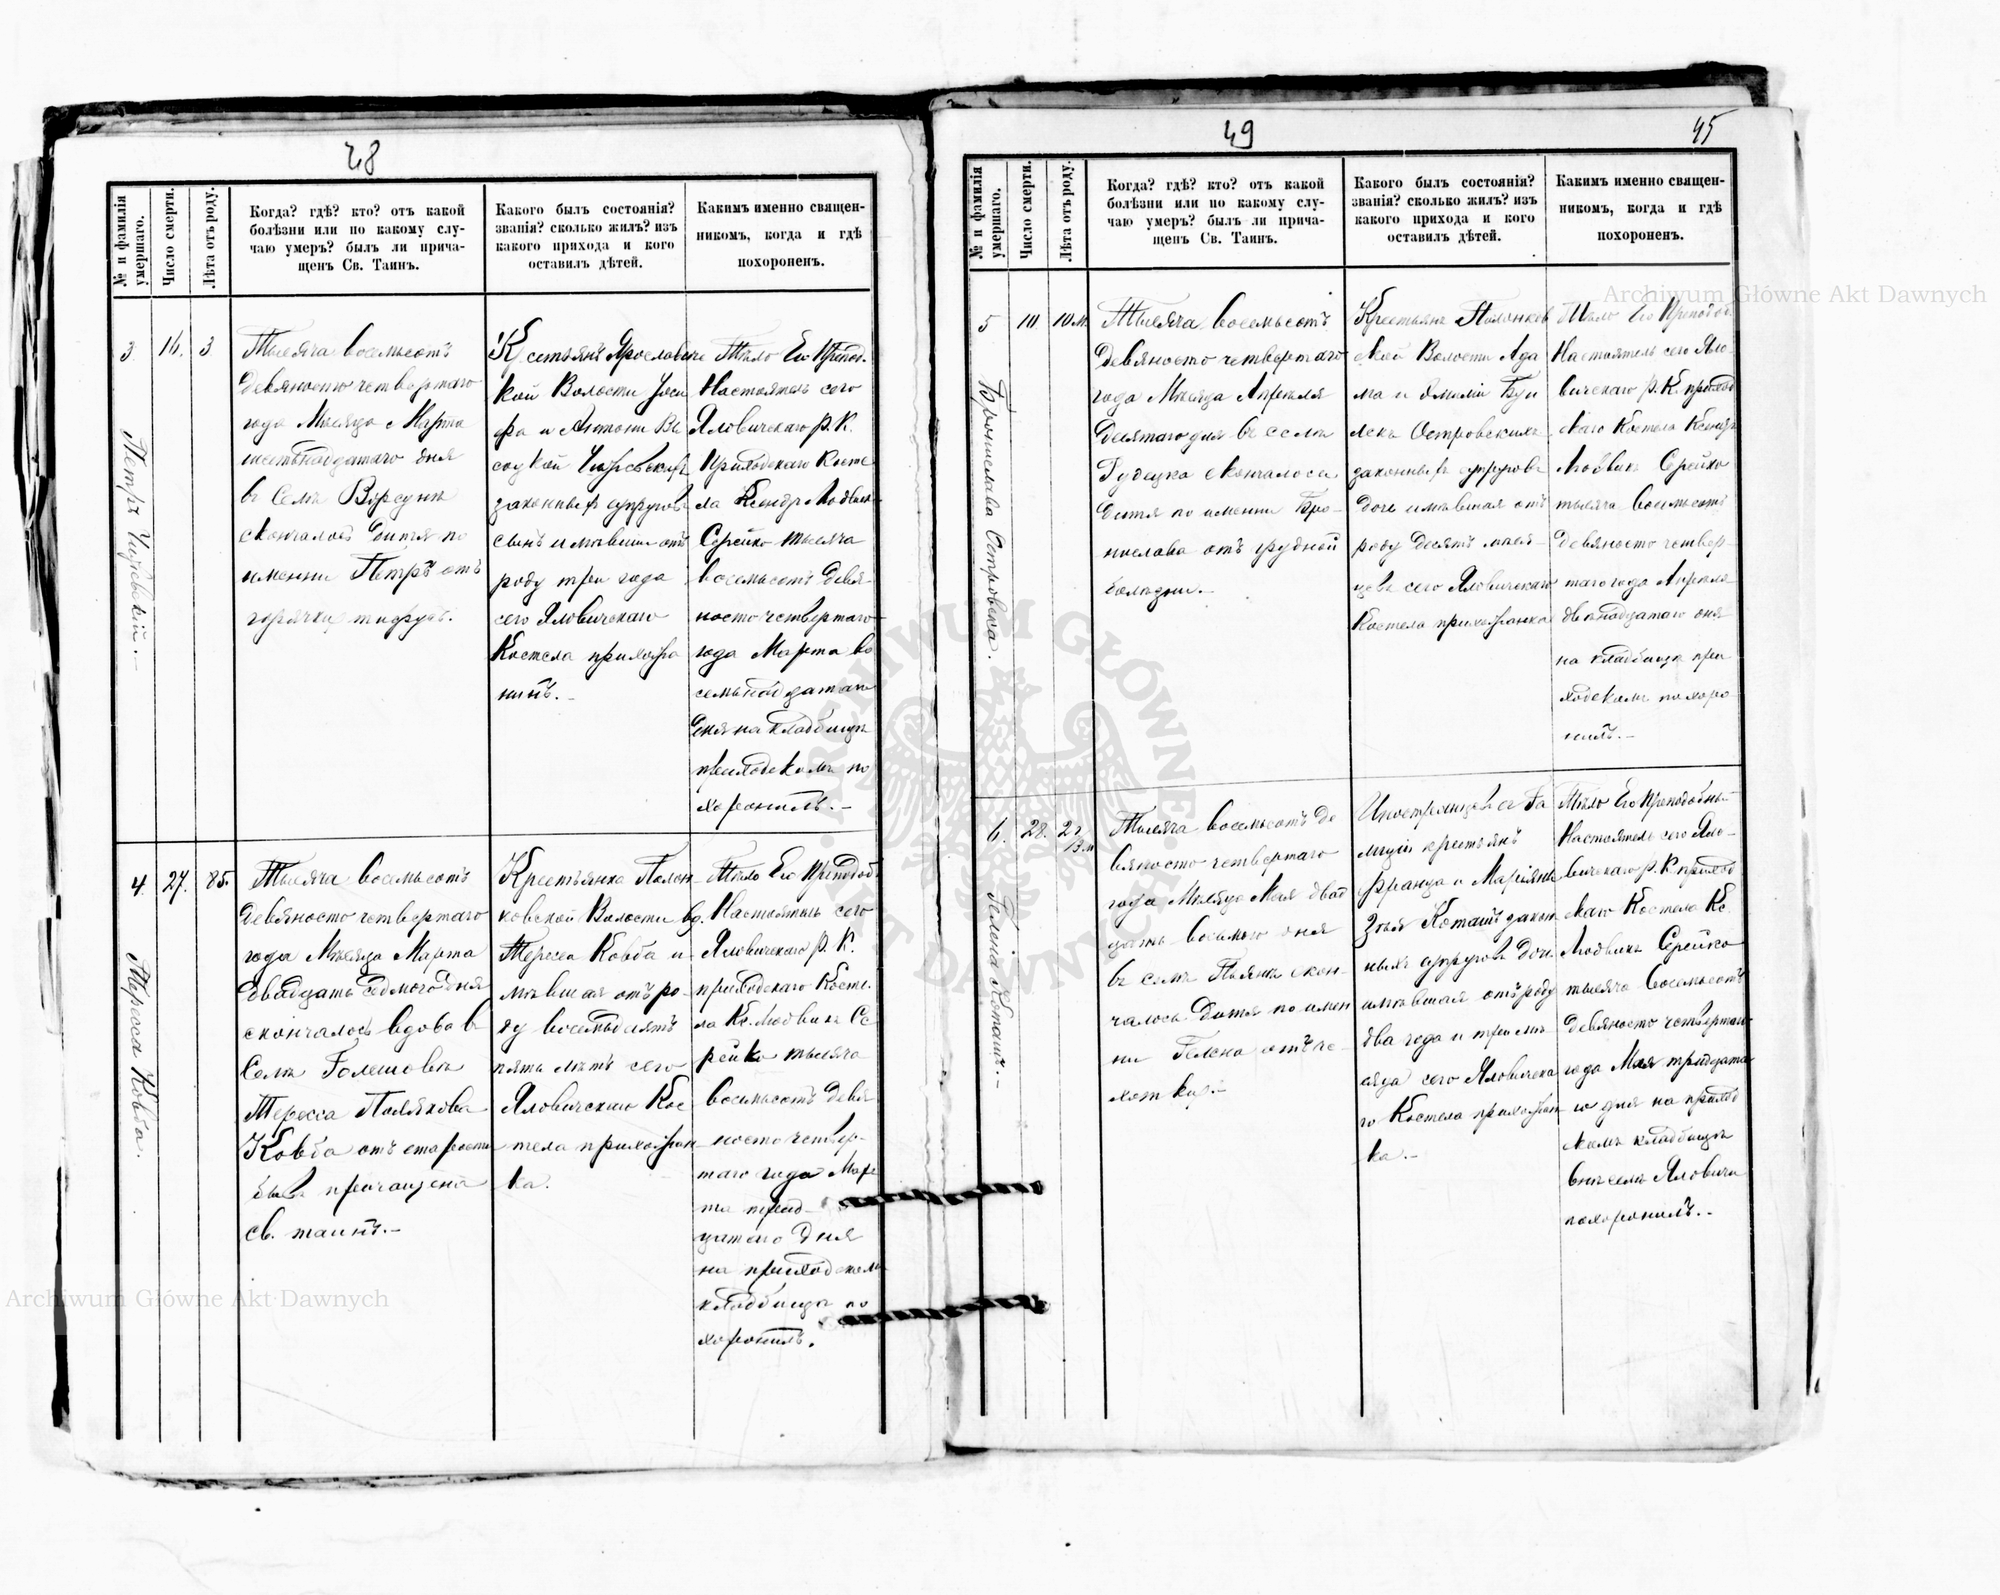 48
№ и фамилія умершаго.
Число смерти.
Лѣта отъ роду.
Когда? гдѣ? кто? отъ какой
болѣзни или по какому слу-
чаю умеръ? былъ ли прича-
щенъ Св. Таинъ.
Какого былъ состоянія?
званія? сколько жилъ? изъ
какого прихода и кого
оставилъ дѣтей.
Какимъ именно священ-
никомъ, когда и гдѣ
похороненъ.
3
16.
3
Петръ
Тысяча восемьсотъ
девяносто четвертаго
года Мѣсяца Марта
шестьнадцатаго дня
въ Селѣ
скончалось дитя по
имени Петръ отъ
горячки
Волости
фа и Антони
законныхъ супруговъ
сынъ имѣвшій отъ
роду три года
сего Яловичскаго
Костела прихожа
нинъ.-
Тѣло Его Препод.
Настоятель сего
Яловичскаго Р. К.
Приходскаго Косте
ла Ксендзъ Людвикъ
Серейко тысяча
восемьсотъ девя-
носто четвертаго
года Марта
семьнадцатаго
дня на кладбищѣ
приходскомъ по
хоронилъ.-
4.
27.
85.
Тересса Ковба.
Тысяча восемьсотъ
девяносто четвертаго
года Мѣсяца Марта
двадцать седмого дня
скончалось вдова в
Селѣ Голешовѣ
Тересса Полякова
Ковба отъ старости
была причащена
св. таинъ.-
Крестьянка Полон-
ковской Волости вд.
Тересса Ковба и-
мѣвшая отъ ро-
ду восемьдесятъ
пять лѣтъ сего
Яловичскаго Кос
тела прихожан
ка.
Тѣло Его Преподоб
Настоятель сего
Яловичскаго Р. К.
приходскаго Косте-
ла Кс. Людвикъ Се
рейко тысяча
восемьсотъ девя
носто четвер-
таго года Мар
та трид-
цатого дня
на приходскомъ
кладбищѣ по
хоронилъ.
49
45
№ и фамилія умершаго.
Число смерти.
Лѣта отъ роду.
Когда? гдѣ? кто? отъ какой
болѣзни или по какому слу-
чаю умеръ? былъ ли прича-
щенъ Св. Таинъ.
Какого былъ состоянія?
званія? сколько жилъ? изъ
какого прихода и кого
оставилъ дѣтей.
Какимъ именно священ-
никомъ, когда и гдѣ
похороненъ.
5
10.
10 м.
Бронислава Островска.
Тысяча восемьсотъ
девяносто четвертаго
года Мѣсяца Апрѣля
десятаго дня въ селѣ
скончалось
дитя по имени Бро-
нислава отъ грудной
болѣзни.-
Крестьянъ Полонков
ской Волости Ада
ма и Эмиліи
Островскихъ
законныхъ супруговъ
дочь имѣвшая отъ
роду десять мѣся-
цевъ сего Яловичскаго
Костела прихожанка
Тѣло Его Преподоб.
Настоятель сего Яло-
вичскаго Р. К. приход
скаго Костела Ксендзъ
Людвикъ Серейко
тысяча восемьсотъ
девяносто четвер-
таго года Апрѣля
двѣнадцатаго дня
на кладбищѣ при
ходскомъ похоро
нилъ.-
6.
28.
2 г. 3 м
Гелена Коташъ.-
Тысяча восемьсотъ де
вяносто четвертаго
года Мѣсяца Мая двад
цать восьмого дня
въ селѣ Пьянѣ скон-
чалось дитя по имен
ни Гелена отъ че-
хотки.-
Иностранцевъ съ Га
лиціи крестьянъ
Франца и Маріянны
Коташъ закон
ныхъ супруговъ дочь
имѣвшая отъ роду
два года и три мѣ
сяца сего Яловичска
го Костела прихожан
ка.-
Тѣло Его Преподобный
Настоятель сего Яло-
вичскаго Р. К. приход
скаго Костела Кс.
Людвикъ Серейко
тысяча восемьсотъ
девяносто четвертаго
года Мая тридцата
го дня на приход
скомъ кладбищѣ
въ селѣ Яловичи
похоронилъ.-
Archiwum Główne Akt Dawnych
Archiwum Główne Akt Dawnych
ARCHIWUM GŁÓWNE AKT DAWNYCH